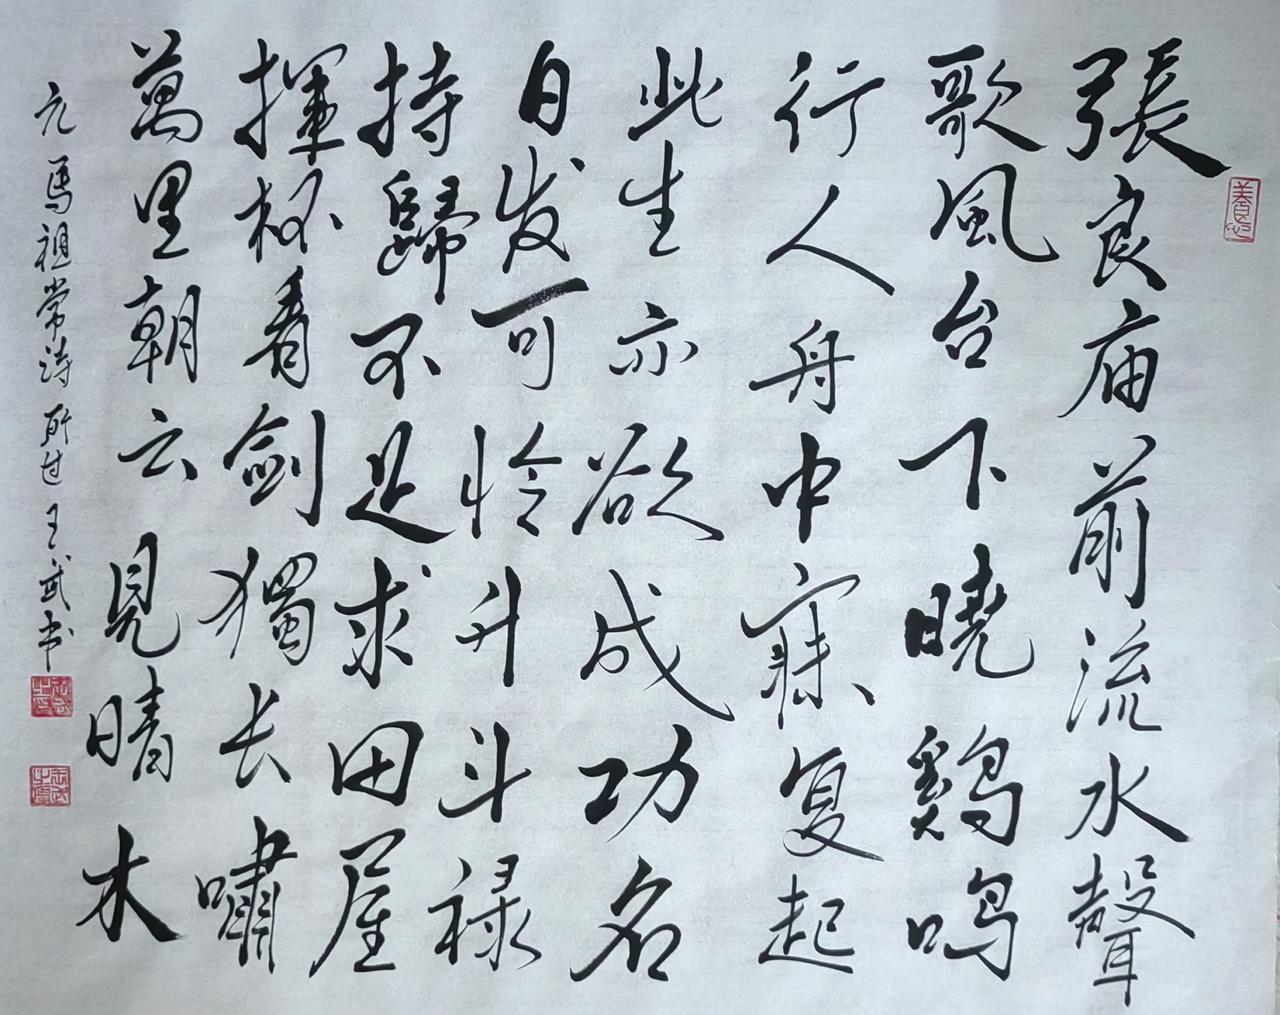 養心
張良庙前流水聲
歌風台下曉鷄鳴
行人舟中寐复起
此生亦欲成功名
白发可怜升斗禄
持歸不足求田屋
揮杯看剑獨长嘯
萬里朝云見晴木
元馬祖常诗 所过 王武书